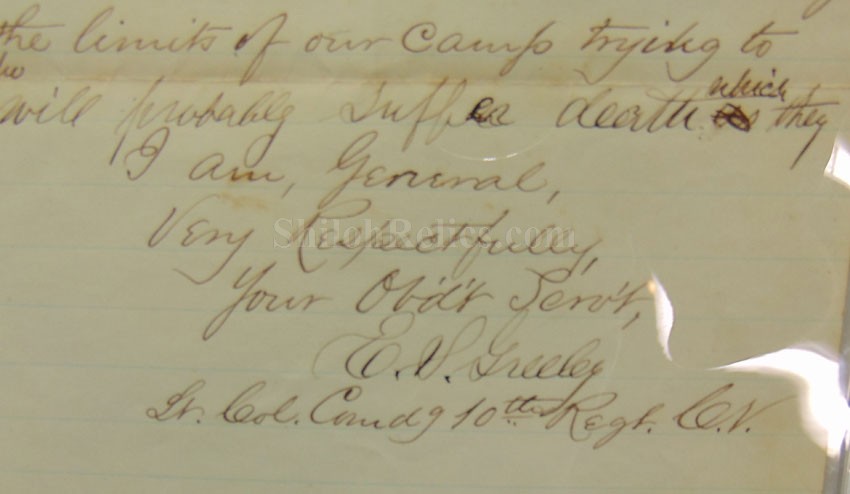 the limits of our Camp trying to
will probably suffer death which they
I am, General,
Very Respectfully,
Your Ob'd't Serv't,
E. S. Greeley
Lt. Col. Comdg 10th Regt. C.V.
ShilohRelics.com